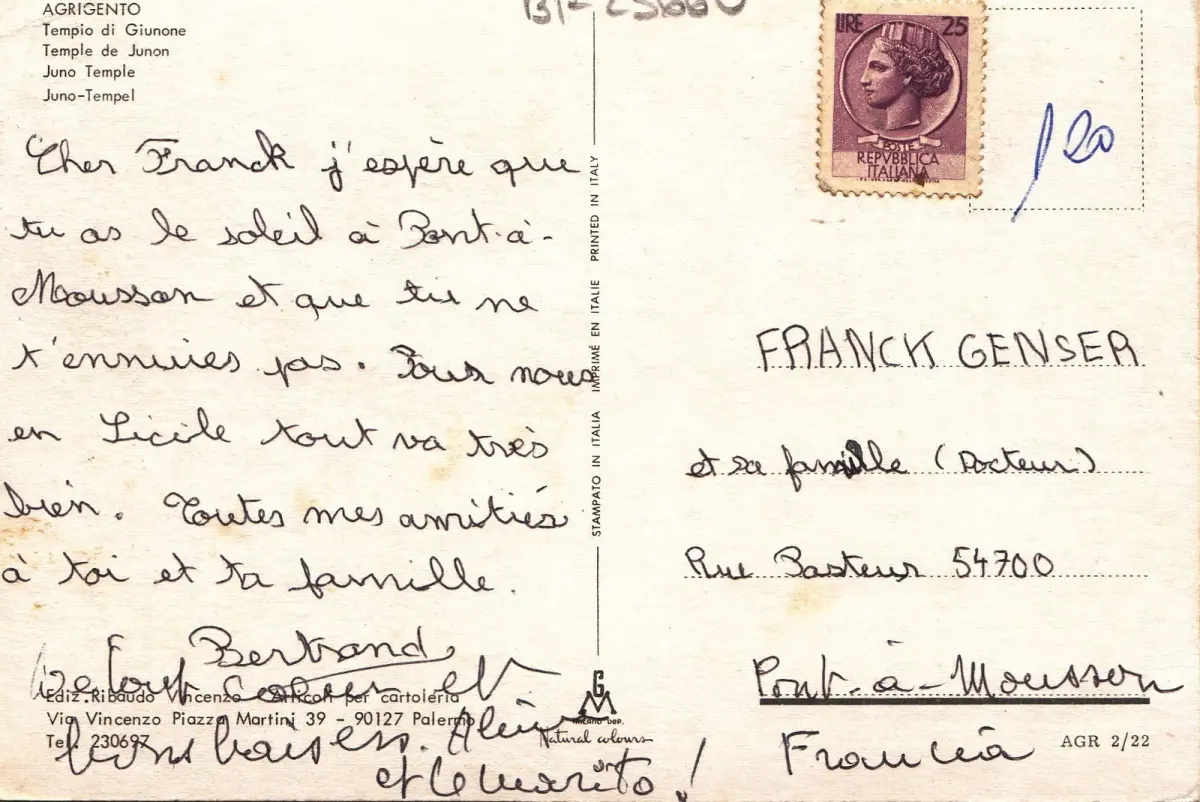 AGRIGENTO
Tempio di Giunone
Temple de Junon
Juno Temple
Juno-Tempel
Cher Franck j'espère que
tu as le soleil à Pont-à-
Mousson et que tu ne
t'ennuies pas. Pour nous
en Sicile tout va très
bien. Toutes mes amitiés
à toi et ta famille.
Bertrand
De tout coeur et
bons baisers.
et le marito!
Ediz. Ribaudo Vincenzo - Articoli per cartoleria
Via Vincenzo Piazza Martini 39 - 90127 Palermo
Tel. 230697
STAMPATO IN ITALIA IMPRIMÉ EN ITALIE PRINTED IN ITALY
GM
MILANO DEP.
Natural colours
LIRE 25
POSTE
REPVBBLICA
ITALIANA
120
FRANCK GENSER
et sa famille (Docteur)
Rue Pasteur 54700
Pont-à-Mousson
Francia
AGR 2/22